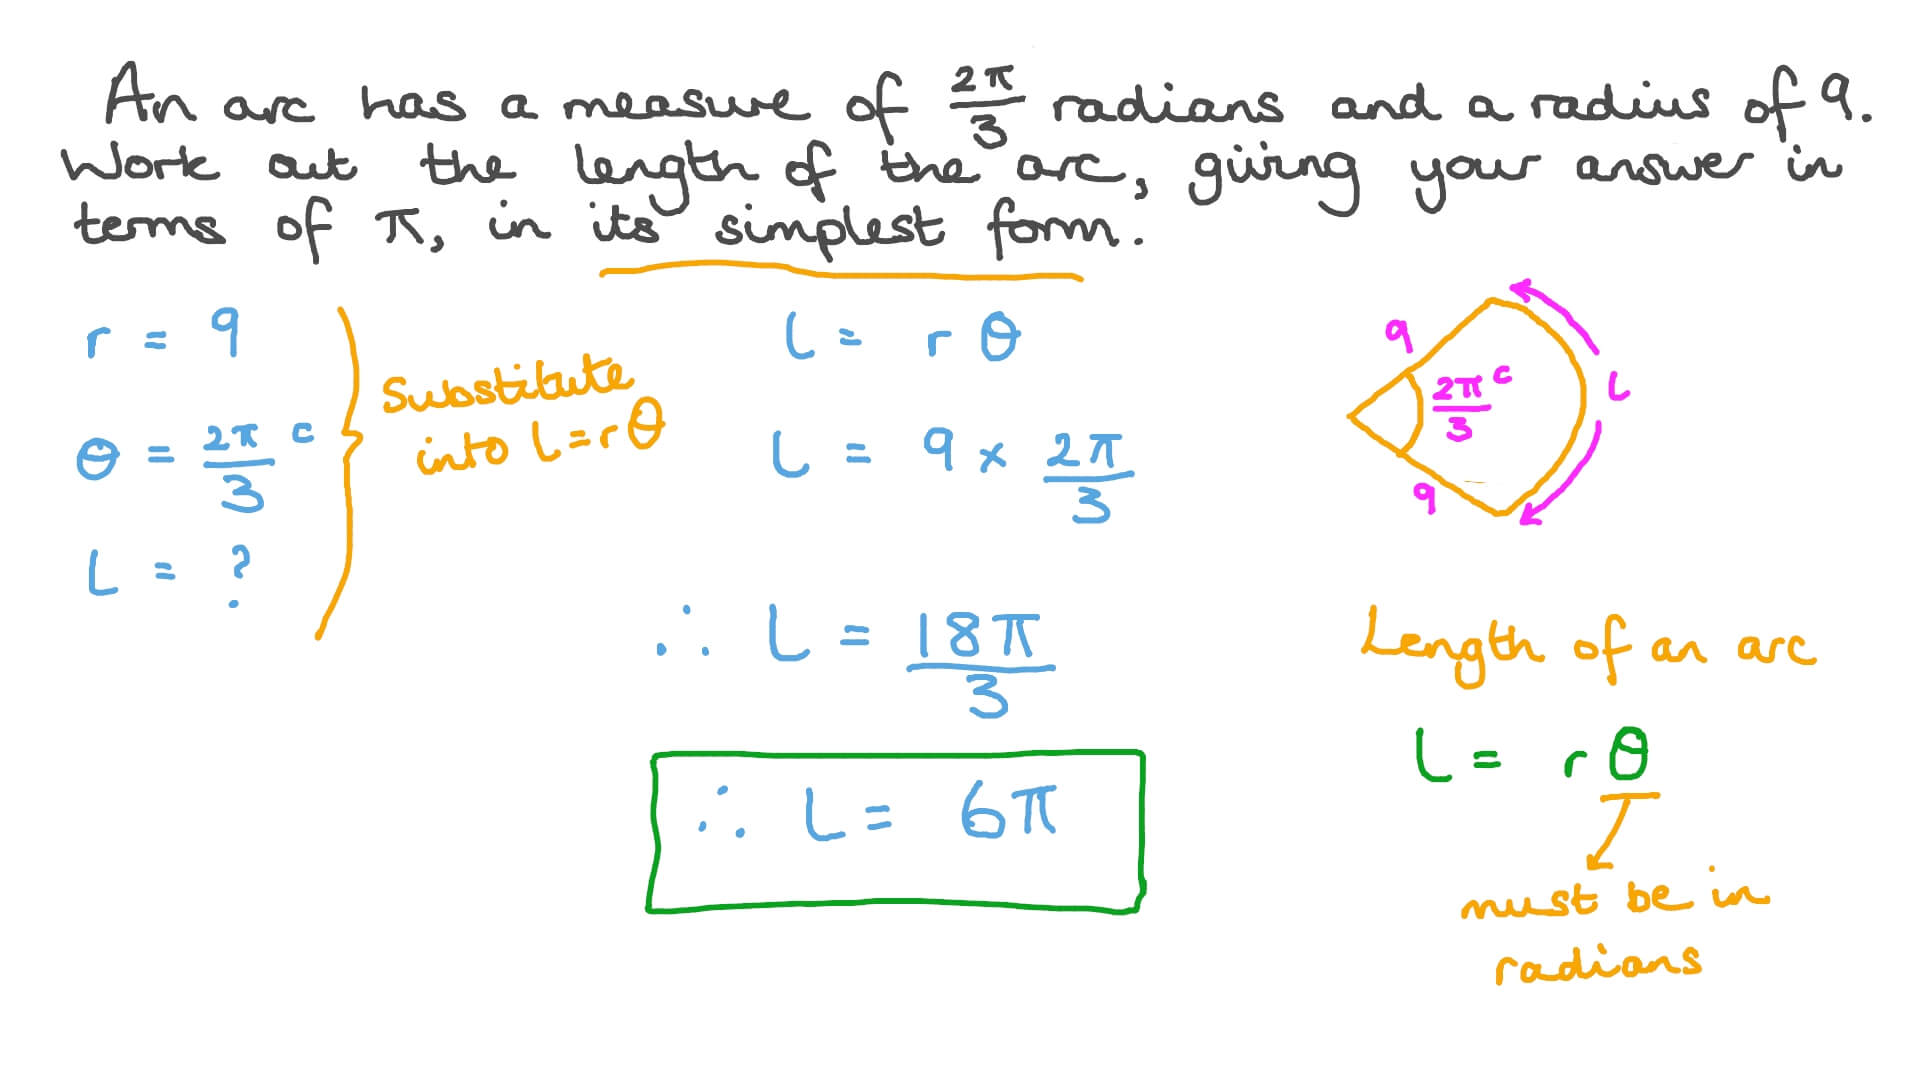 An arc has a measure of 2π/3 radians and a radius of 9.
Work out the length of the arc, giving your answer in
terms of π, in its simplest form.
r = 9
θ = 2π/3 ᶜ
L = ?
Substitute
into L = rθ
L = rθ
L = 9 × 2π/3
∴ L = 18π/3
∴ L = 6π
9
2π/3 ᶜ
L
9
Length of an arc
L = rθ
must be in
radians